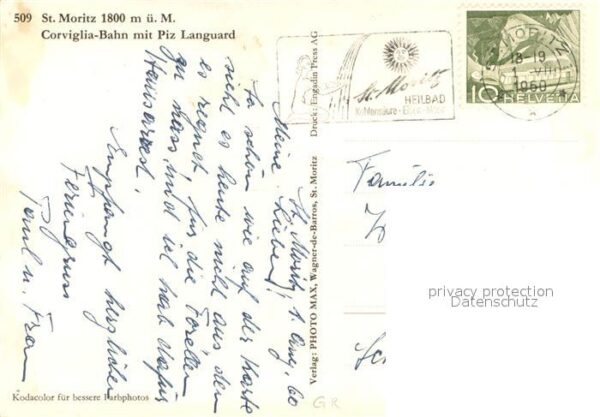 509 St. Moritz 1800 m ü. M.
Corviglia-Bahn mit Piz Languard
St. Moritz
HEILBAD
ST. MORITZ
18-19
VIII
1960
10 HELVETIA
Druck: Engadin Press AG
Verlag: PHOTO MAX, Wagner-de-Barros, St. Moritz
St. Moritz, 1. Aug. 60
Meine Lieben!
So schön wie auf der Karte
sieht es heute nicht aus denn
es regnet, für die Forellen
zu nass, und ich hab dafür
Hausarrest.
Empfangt herzliche
Feriengrüsse
Paul u. Frau
Familie
privacy protection
Datenschutz
Kodacolor für bessere Farbphotos
GR